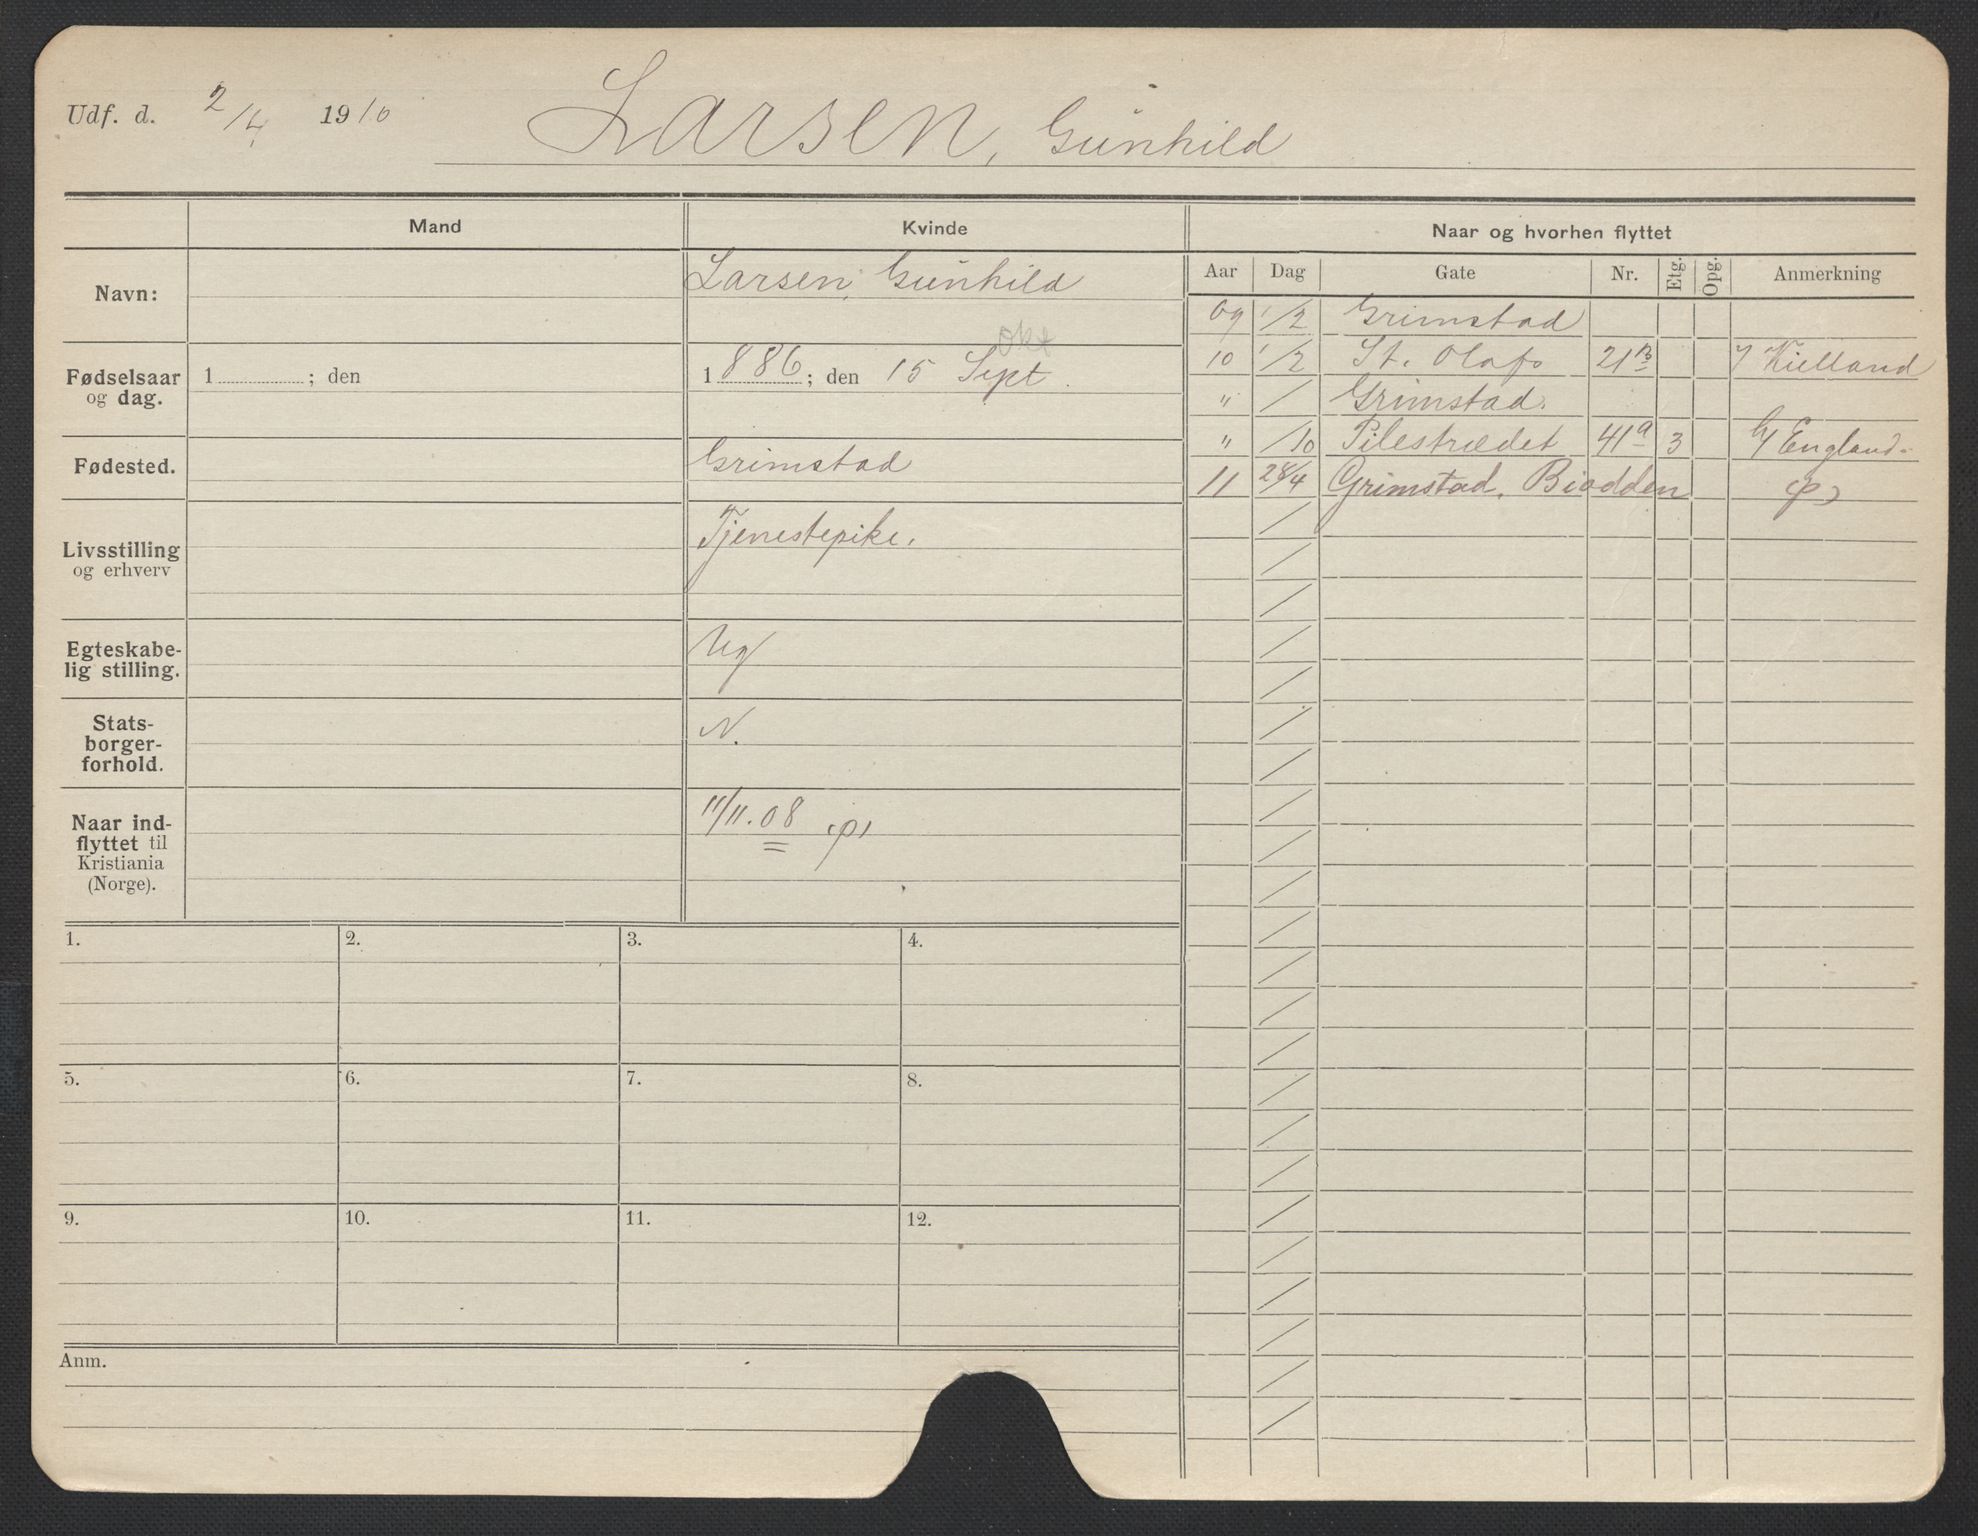 Udf. d. 2/4 1910 Larsen, Gunhild
Mand Kvinde Naar og hvorhen flyttet
Navn: Larsen, Gunhild
Aar Dag Gate Nr. Etg. Opg. Anmerkning
09 1/2 Grimstad
10 1/2 St. Olafs 21B Kielland
" / Grimstad.
" /10 Pilestrædet 41a 3 England
11 28/4 Grimstad,
Fødselsaar og dag. 1 ; den
1886; den 15 Sept.
Okt
Fødested. Grimstad
Livsstilling og erhverv Tjenestepike.
Egteskabe-
lig stilling. Ug
Stats-
borger-
forhold. N.
Naar ind-
flyttet til
Kristiania
(Norge).
11/11.08
1. 2. 3. 4.
5. 6. 7. 8.
9. 10. 11. 12.
Anm.